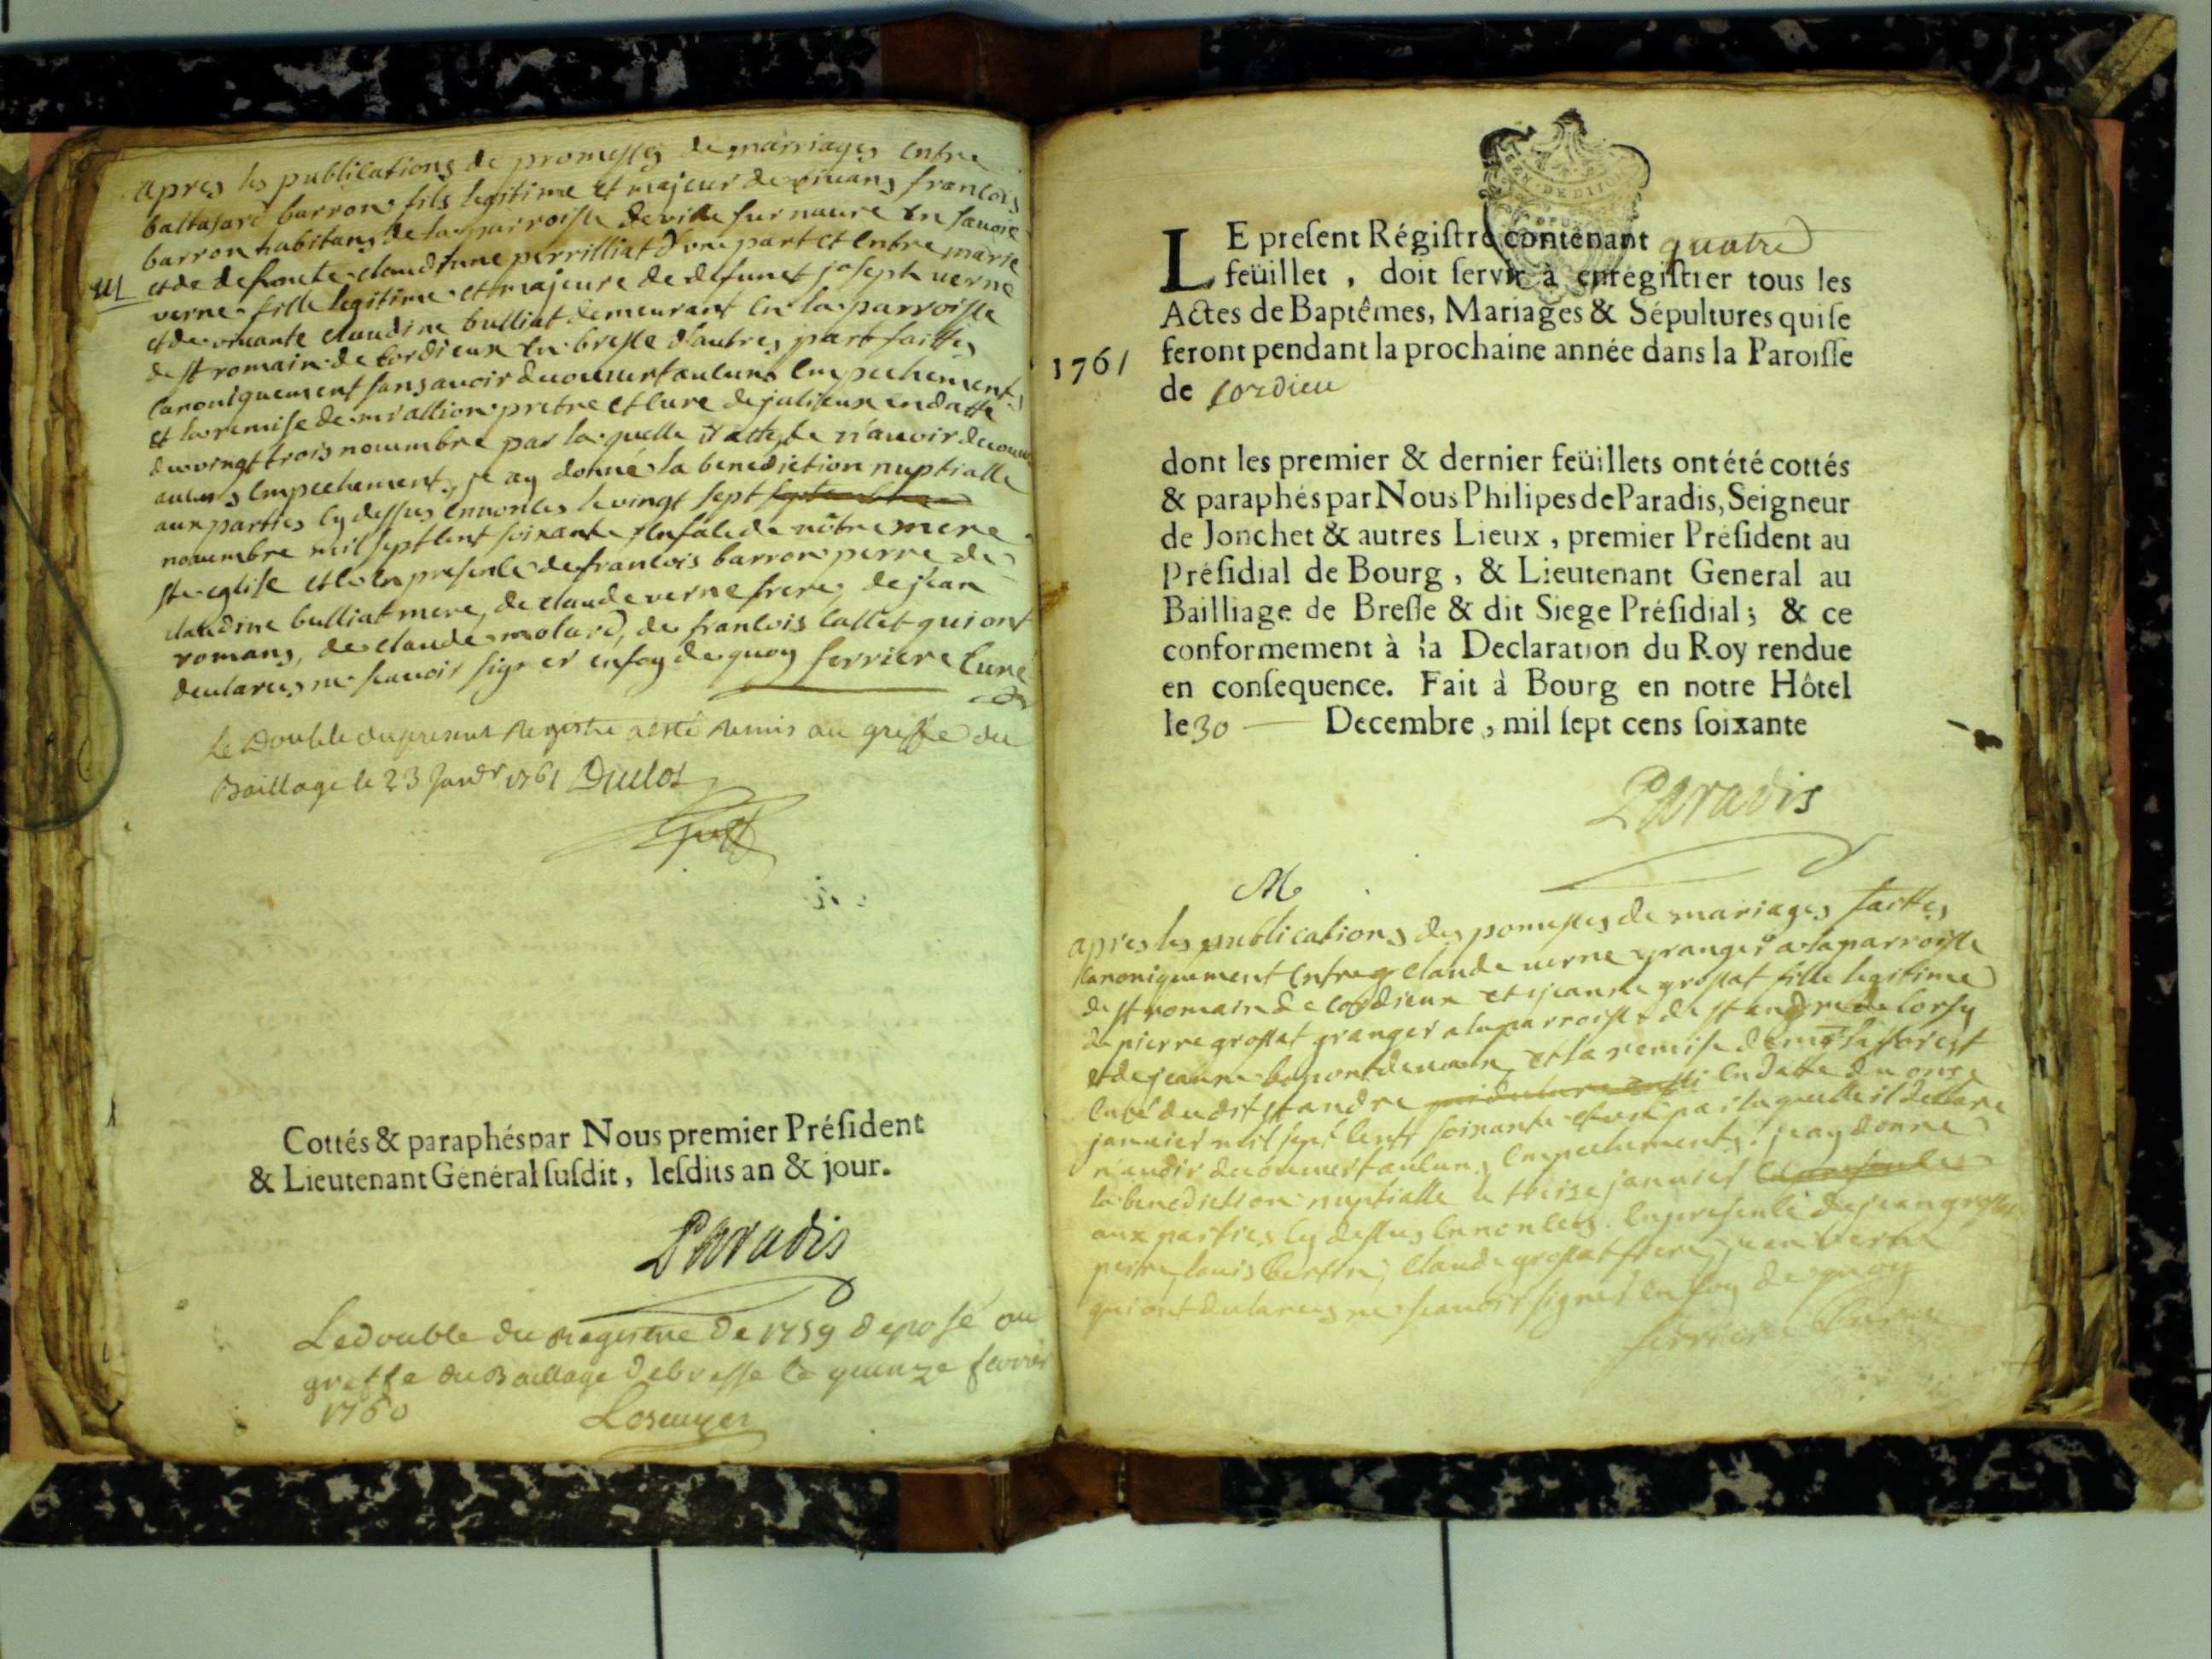 apres les publications de promesses de marriages entre
baltasard barron fils legitime et majeur de vivans francois
barron habitans de la parroisse de ville sur naure en savoie
et de defunte claudinne perrilliat d'une part et entre marie
M
verne fille legitime et majeure de defunct joseph verne
et de vivante claudine bulliat demeurant en la parroisse
de st romain de Cordieux en bresse d'autres part faittes
canoniquement sans avoir decouvert auluns empechements
et la remise de mr allion pretre et curé de jalieux en datte
du vingt trois novembre par laquelle il atteste n'avoir decouvert
auluns empechement, je ay donné la benediction nuptialle
aux parties cy dessus ennoncés le vingt sept septembre
novembre mil sept cent soixante en face de nôtre mere
ste eglise et ce en presence de francois barron perre de
claudine bulliat mere, de claude verne frere, de jean
romans, de claude molard, de francois callet qui ont
declarés ne scavoir signer en foy de quoy ferriere Curé
Le Double du present Registre a esté remis au greffe du
Baillage le 23 Janvr 1761 Duclos
Greff
Cottés & paraphés par Nous premier Préſident
& Lieutenant Général ſuſdit, leſdits an & jour.
Paradis
Le double du Registre de 1759 deposé au
greffe du Baillage de bresse le quinze fevrier
1760
GEN · DE DIJON
LE preſent Régiſtre contenant quatre
feüillet , doit ſervir à enrégiſtrer tous les
Actes de Baptêmes, Mariages & Sépultures qui ſe
1761 feront pendant la prochaine année dans la Paroiſſe
de Cordieu
dont les premier & dernier feüillets ont été cottés
& paraphés par Nous Philipes de Paradis, Seigneur
de Jonchet & autres Lieux , premier Préſident au
Préſidial de Bourg , & Lieutenant General au
Bailliage de Breſſe & dit Siege Préſidial ; & ce
conformement à la Declaration du Roy rendue
en conſequence. Fait à Bourg en notre Hôtel
le 30 Decembre , mil ſept cens ſoixante
Paradis
M
apres les publications des pomesses de mariages faittes
canoniquement entre claude verne granger a la parroisse
de st romain de cordieux et jeanne grossat fille legitime
de pierre grossat granger a la parroisse de st andre de Corsy
et de jeanne et la remise de mr la forest
curé du dit st andre en date du onze
janvier mil sept cents soixante et un par laquelle il declare
n'avoir decouvert auluns empechements. je ay donné
la benediction nuptialle le treize janvier
aux parties cy dessus ennoncés. en presence de jean grossat
perre, louis claude grossat frere, jean verne
qui ont declarés ne scavoir signer en foy de quoy
ferriere Curé